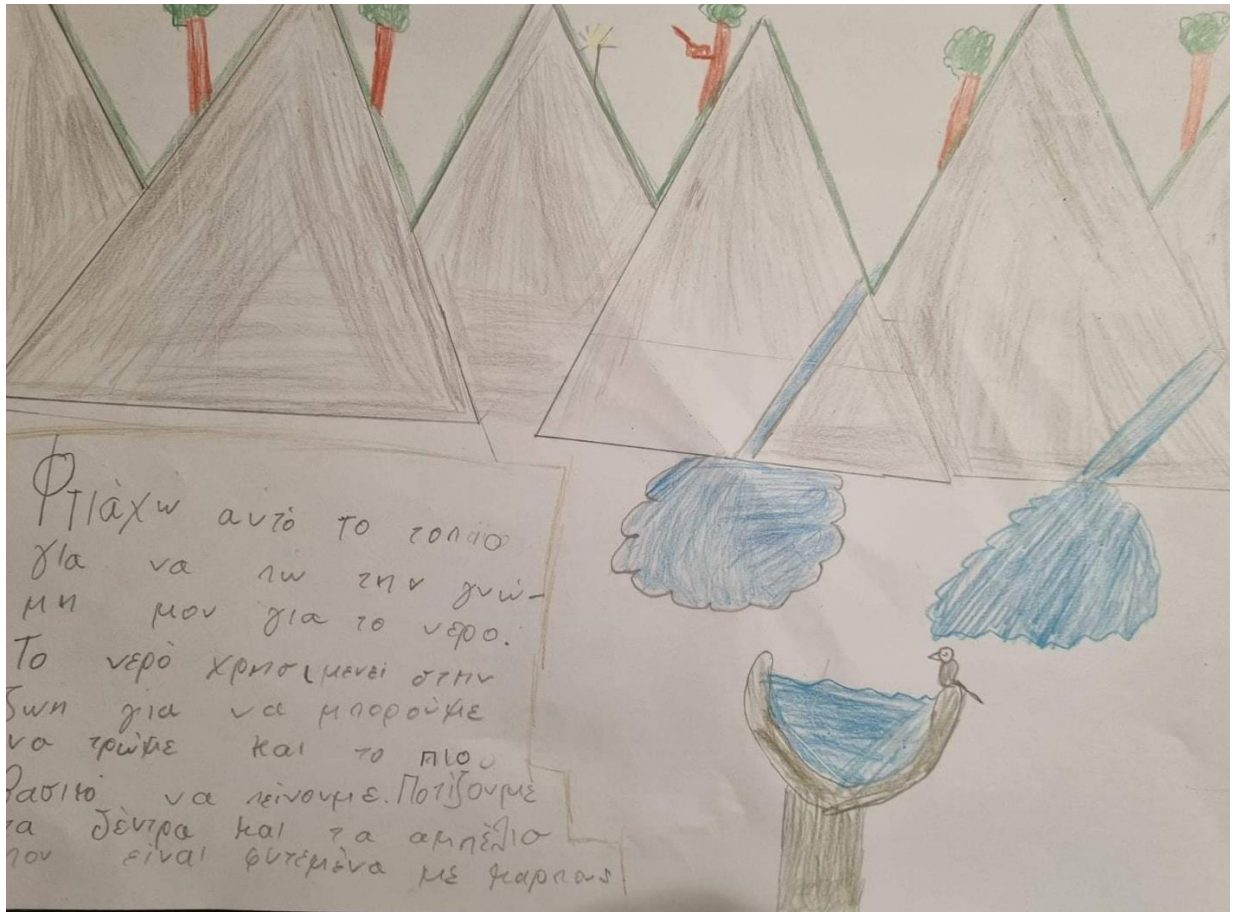 Φτιάχω αυτό το τοπίο
για να πω την γνώ-
μη μου για το νερό.
Το νερό χρησιμευει στην
ζωη για να μπορούμε
να τρώμε και το πιου
βασικό να πείνουμε. Ποτίζουμε
τα δέντρα και τα αμπέλια
που είναι φυτεμένα με καρπους